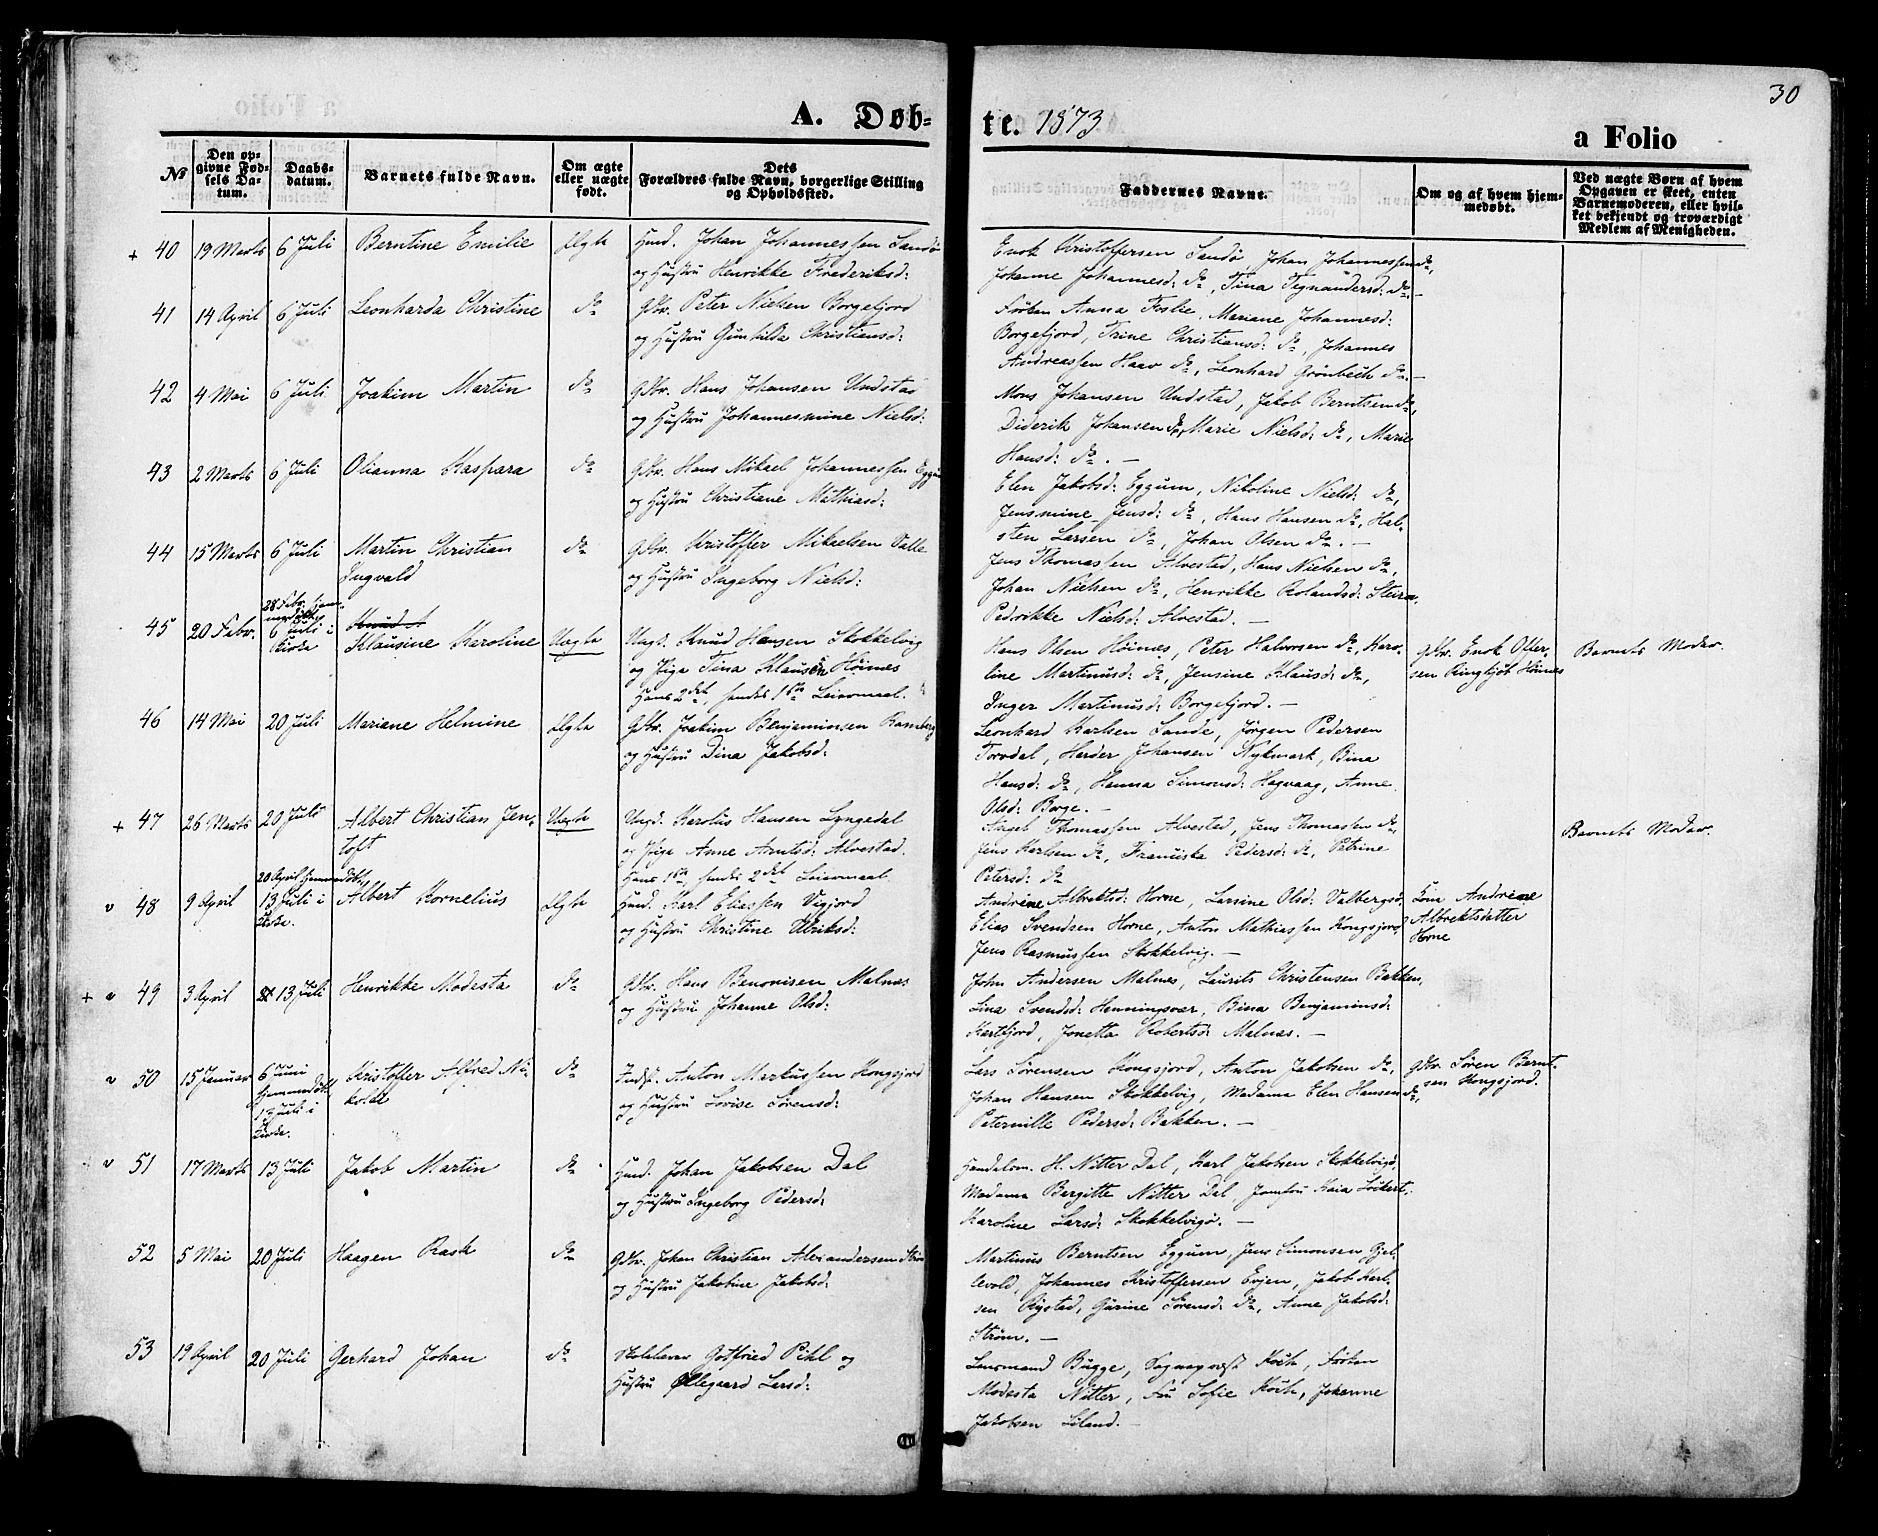 30
A. Døb-
te. 1873
a Folio
No
Den op-
givne Fød-
sels Da-
tum.
Daabs-
datum.
Barnets fulde Navn.
Om ægte
eller uægte
født.
Dets
Forældres fulde Navn, borgerlige Stilling
og Opholdssted.
Faddernes Navne.
Om og af hvem hjem-
medøbt.
Ved uægte Børn af hvem
Opgaven er skeet, enten
Barnemoderen, eller hvil-
ket bekjendt og troværdigt
Medlem af Menigheden.
+ 40 19 Marts 6 Juli Berntine Emilie Ægte Huusm. Johan Johannessen Sandø
og Hustru Henrikke Frederiksd:
Enok Christoffersen Sandø, Johan Johannessen do,
Johanne Johannesd: do, Tina Tegnandersd: do.—
41 14 April 6 Juli Leonharda Christine do Gbr. Peter Nielsen Borgefjord
og Hustru Gunhilda Christiansd:
Frøken Anna Foslie, Mariane Johannesd:
Borgefjord, Trine Christiansd: do, Johannes
Andreassen Haav do, Leonhard Grønbech do.—
42 4 Mai 6 Juli Joakim Martin do Gbr. Hans Johansen Undstad
og Hustru Johannesmine Nielsd:
Mons Johansen Undstad, Jakob Berntsen do,
Diderik Johansen do, Marie Nielsd: do, Marie
Hansd: do.—
43 2 Marts 6 Juli Olianna Kaspara do Gbr. Hans Mikael Johannessen Eggum
og Hustru Christiane Mathiasd:
Elen Jakobsd: Eggum, Nikoline Nielsd: do,
Jensmine Jensd: do, Hans Hansen do, Hal-
sten Larsen do, Johan Olsen do.—
44 15 Marts 6 Juli Martin Christian
Ingvald
do Gbr. Kristoffer Mikaelsen Valle
og Hustru Ingeborg Nielsd:
Jens Thomassen Alvestad, Hans Nielsen do,
Johan Nielsen do, Henrikke Rolandsd: Steira,
Pedrikke Nielsd: Alvestad.—
45 20 Febr. 28 Febr. hjem-
6 Juli i
Kirke
Knud A
Klausine Karoline
Uægte Ungk. Knud Hansen Stokkelvig
og Pige Tina Klausen Høines
Hans 2det, hendes 1ste Leiermaal.
Hans Olsen Høines, Peter Halvorsen do, Karo-
line Martinusd: do, Jensine Klausd: do,
Inger Martinusd: Borgefjord.—
Gbr. Enok Ofter-
sen Ringsjøt Høines
Barnets Moder.
46 14 Mai 20 Juli Mariane Helmine Ægte Gbr. Joakim Benjaminsen Ramberg
og Hustru Dina Jakobsd:
Leonhard Karlsen Sande, Jørgen Pedersen
Torvdal, Harder Johansen Nykmark, Bina
Hansd: do, Hanna Simonsd: Hagvaag, Anne
Olsd: Borge.—
+ 47 26 Marts 20 Juli Albert Christian Jen-
toft
Uægte Ungk. Karolus Hansen Lyngedal
og Pige Anne Arntsd: Alvestad.
Hans 1ste, hendes 2det Leiermaal
Angel Thomassen Alvestad, Jens Thomassen do,
Jens Karlsen do, Franciska Pedersd: do, Petrine
Petersd: do
Barnets Moder.
v 48 9 April 20 April Hjemmedøbt,
13 Juli i
Kirke.
Albert Kornelius Ægte Huusm. Karl Eliassen Vigjord
og Hustru Christine Ulriksd:
Andrine Albrektsd: Horne, Larsine Olsd: Valbergsd,
Elias Svendsen Horne, Anton Mathiassen Kongsjord,
Jens Rasmussen Stokkelvig.—
Kone Andrine
Albrektsdatter
Horne
+ v 49 3 April 13 Juli Henrikke Modesta do Gbr. Hans Benonisen Malnæs
og Hustru Johanne Olsd:
John Andersen Malnes, Laurits Christensen Bakken,
Lina Svendsd: Henningsvær, Bina Benjaminsd:
Kartfjord, Jonetta Robertsd: Malnæs.—
v 50 15 Januar 6 Juni
Hjemmedøbt,
13 Juli i
Kirke.
Kristoffer Alfred Ni-
kolai
do Indst. Anton Markussen Kongsjord
og Hustru Lovise Sørensd:
Lars Sørensen Kongsjord, Anton Jakobsen do,
Johan Hansen Stokkelvig, Madame Elen Hansen do,
Peternille Pedersd: Bakken.—
Gbr. Søren Bernt-
sen Kongsjord.
v 51 17 Marts 13 Juli Jakob Martin do. Huusm. Johan Jakobsen Dal
og Hustru Ingeborg Pedersd:
Handelsm. H. Nitter Dal, Karl Jakobsen Stokkelvigø,
Madame Bergitte Nitter Dal, Jomfru Kaia Lockert,
Karoline Larsd: Stokkelvigø.—
52 5 Mai 20 Juli Haagen Rask do Gbr. Johan Christian Alexandersen Strøm
og Hustru Jakobine Jakobsd:
Martinus Berntsen Eggum, Jens Simonsen Gjel-
levold, Johannes Kristoffersen Evjen, Jakob Karl-
sen Rystad, Gurine Sørensd: do, Anne Jakobsd:
Strøm.—
53 19 April 20 Juli Gerhard Johan do Skolelærer Gotfried Pihl og
Hustru Øllegaard Larsd:
Lensmand Bugge, Koch, Frøken
Modesta Nitter, Fru Sofie Koch, Johanne
Jakobsen Liland.—